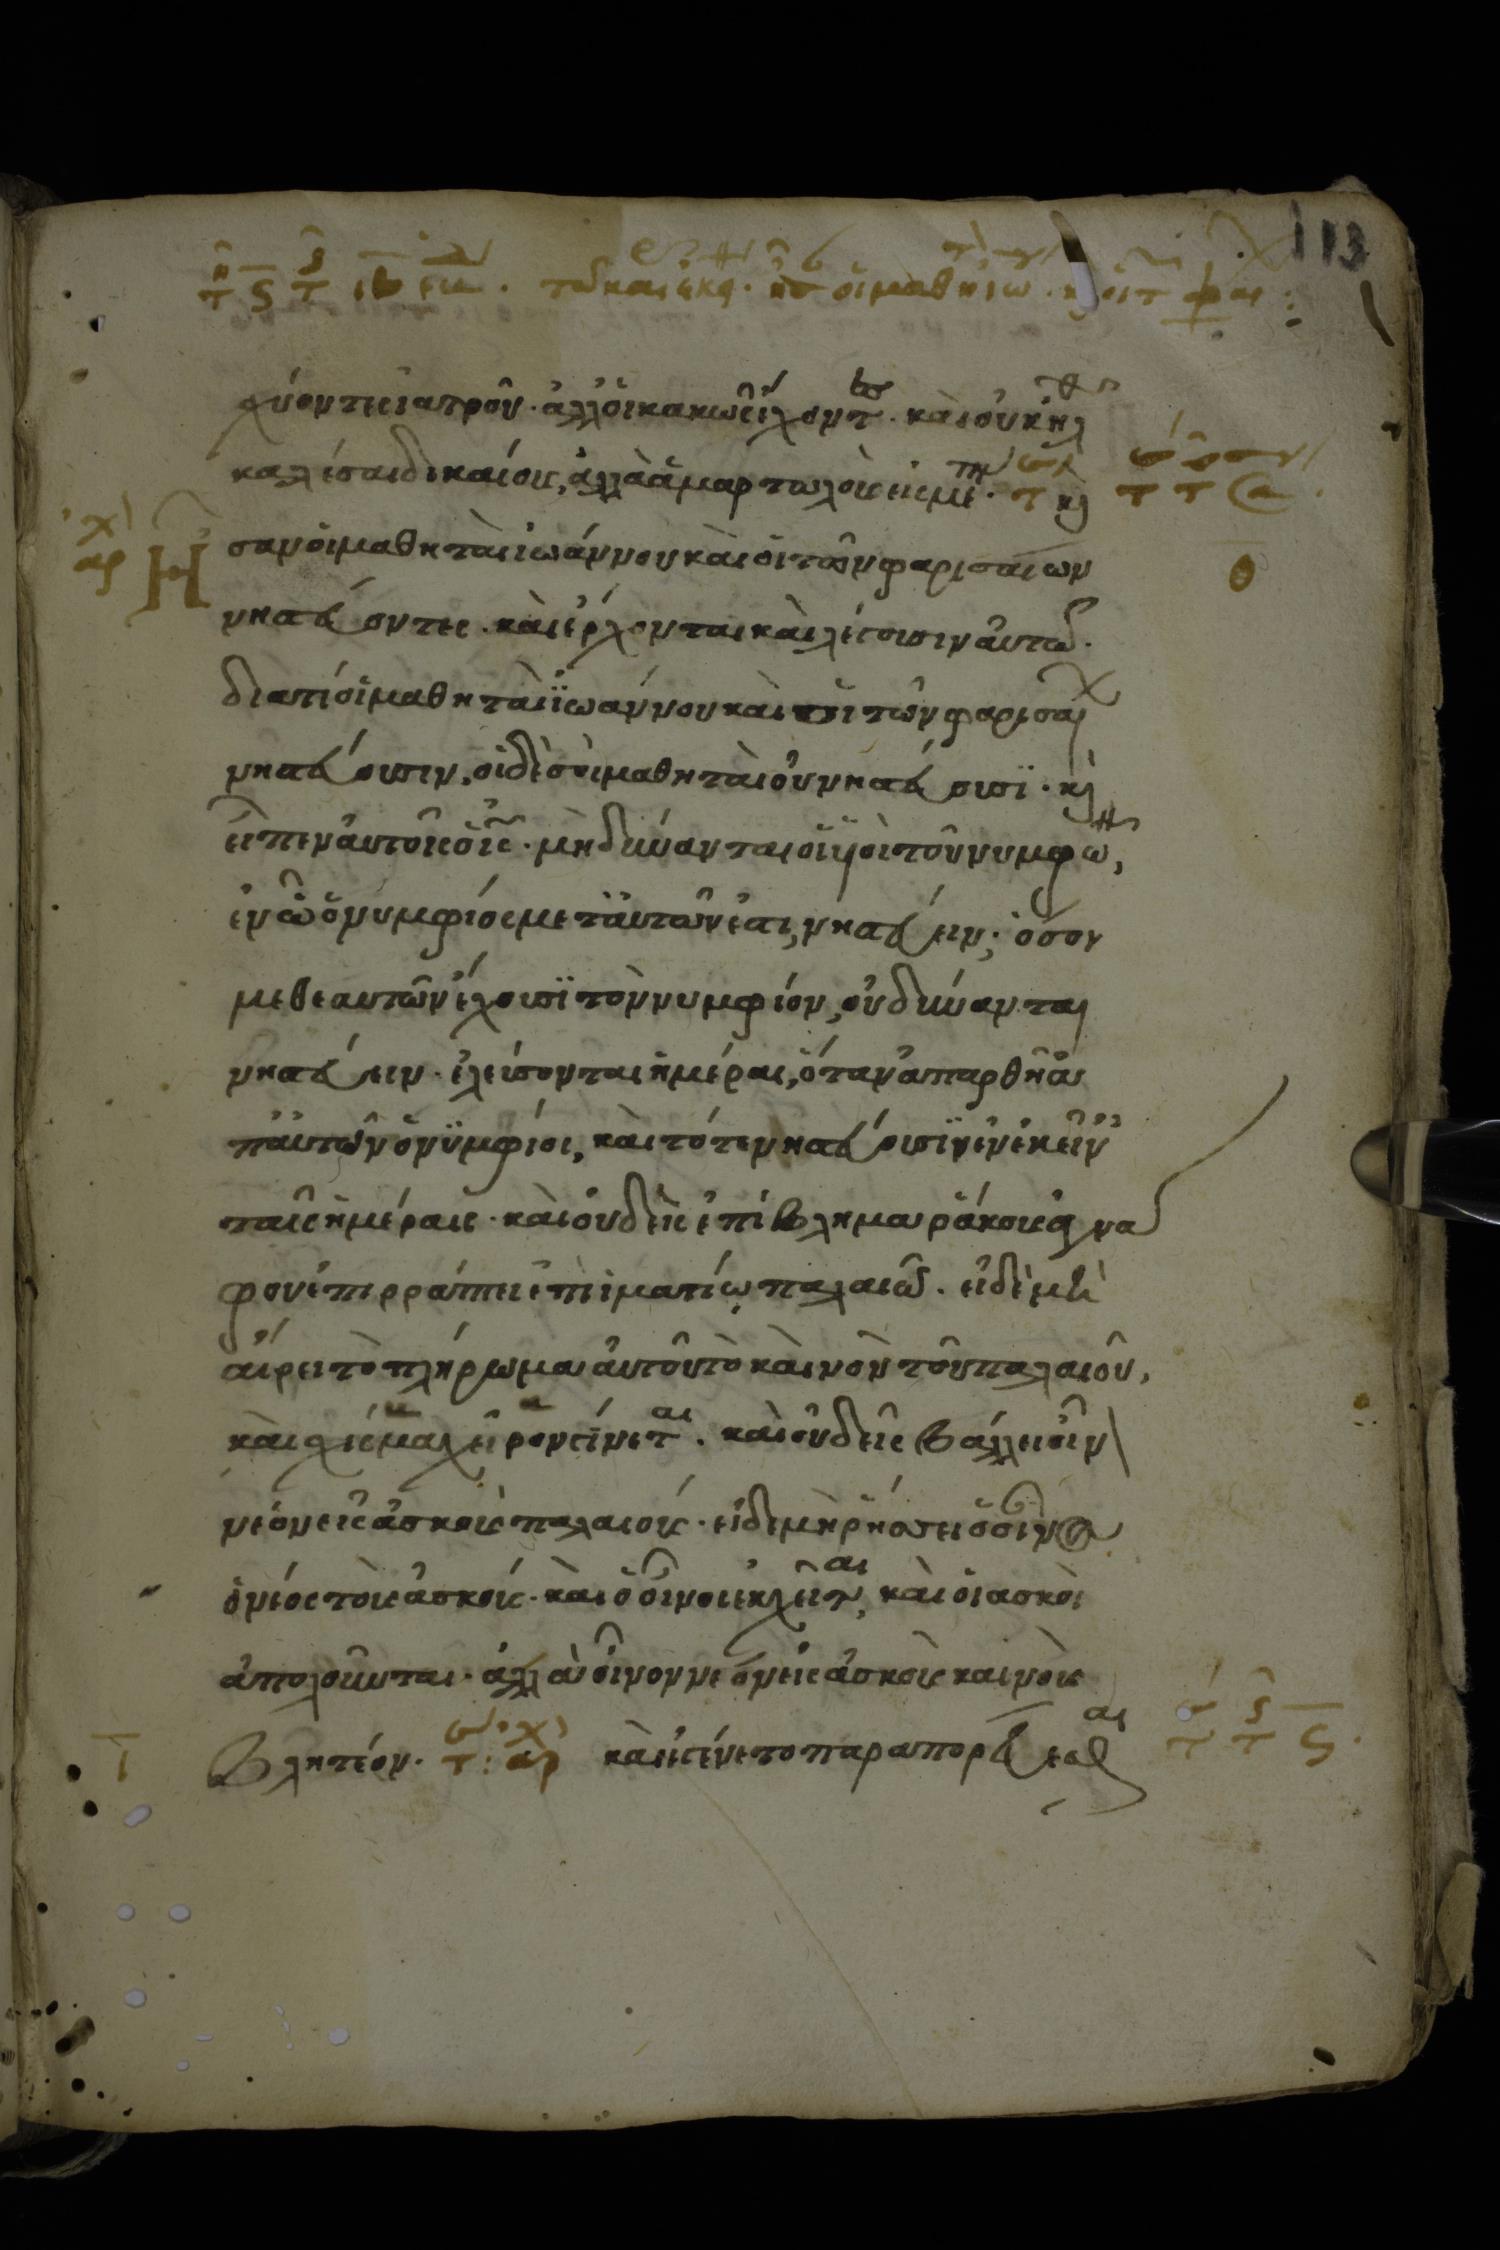 113
χύοντες ἰατροῦ· ἀλλ' οἱ κακῶς ἔχοντες· καὶ οὐκ ἦλθον
καλέσαι δικαίους, ἀλλὰ ἁμαρτωλοὺς εἰς με
σαν οἱ μαθηταὶ ἰωάννου καὶ οἱ τῶν φαρισαίων
νηστεύοντες· καὶ ἔρχονται καὶ λέγουσιν αὐτῶ·
διατί οἱ μαθηταὶ ἰωάννου καὶ οἱ τῶν φαρισαί
νηστεύουσιν, οἱ δὲ σοὶ μαθηταὶ οὐ νηστεύουσι· κ
εἶπεν αὐτοῖς ὁ ἰς· μὴ δύνανται οἱ υἱοὶ τοῦ νυμφῶ,
ἐν ὧ ὁ νυμφίος μετ' αὐτῶν ἐστι, νηστεύειν; ὅσον
μεθ' ἑαυτῶν ἔχουσι τὸν νυμφίον, οὐ δύνανται
νηστεύειν· ἐλεύσονται ἡμέραι, ὅταν ἀπαρθῆ ἀ
π' αὐτῶν ὁ νυμφίος, καὶ τότε νηστεύουσιν ἐν ἐκείν
ταῖς ἡμέραις· καὶ οὐδεὶς ἐπίβλημα ῥάκους ἀγνά
φου ἐπιρράπτει ἐπὶ ἱματίω παλαιῶ· εἰ δὲ μὴ
αἴρει τὸ πλήρωμα αὐτοῦ τὸ καινὸν τοῦ παλαιοῦ,
καὶ σχίσμα χεῖρον γίνεται· καὶ οὐδεὶς βάλλει οἶν
νέον εἰς ἀσκοὺς παλαιούς· εἰ δὲ μὴ ῥήσσει ὁ οἶνος
ὁ νέος τοὺς ἀσκούς· καὶ ὁ οἶνος ἐκχεῖται, καὶ οἱ ἀσκοὶ
ἀπολοῦνται· ἀλλὰ οἶνον νέον εἰς ἀσκοὺς καινοὺς
βλητέον· καὶ ἐγένετο παραπορεύεσθαι